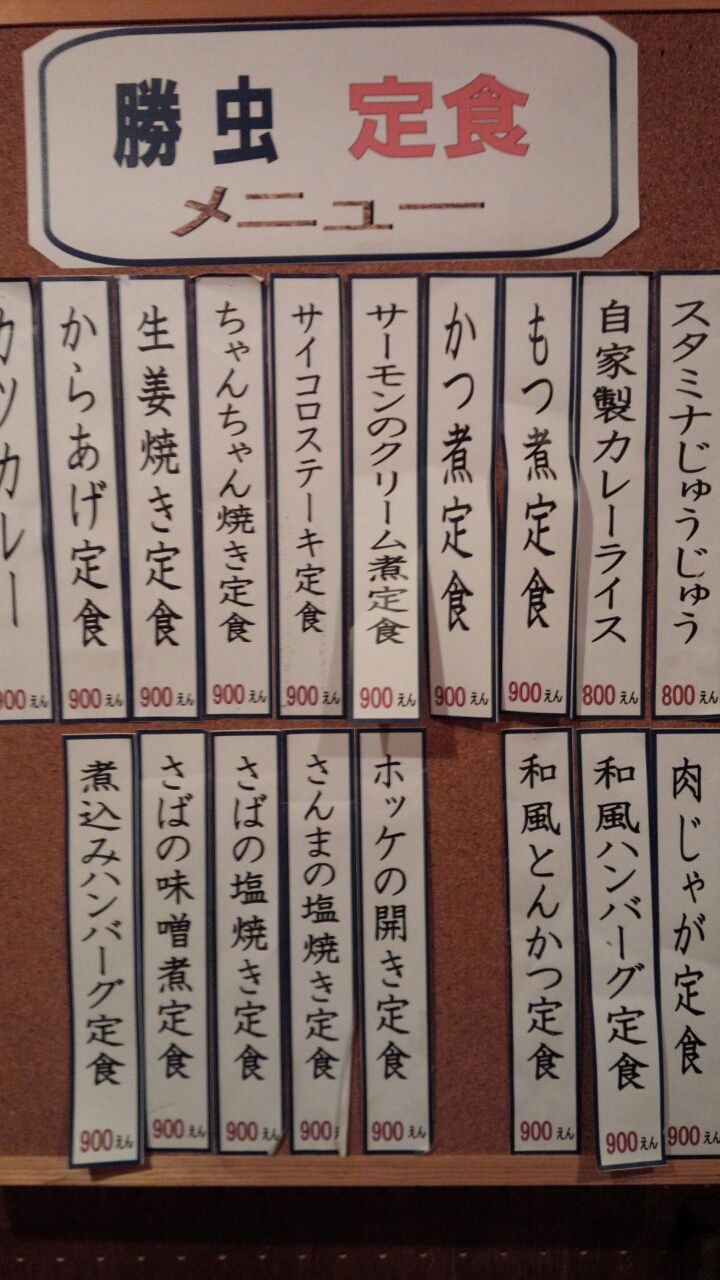 勝虫 定食
メニュー
スタミナじゅうじゅう
800えん
自家製カレーライス
800えん
もつ煮定食
900えん
かつ煮定食
900えん
サーモンのクリーム煮定食
900えん
サイコロステーキ定食
900えん
ちゃんちゃん焼き定食
900えん
生姜焼き定食
900えん
からあげ定食
900えん
カツカレー
900えん
肉じゃが定食
900えん
和風ハンバーグ定食
900えん
和風とんかつ定食
900えん
ホッケの開き定食
900えん
さんまの塩焼き定食
900えん
さばの塩焼き定食
900えん
さばの味噌煮定食
900えん
煮込みハンバーグ定食
900えん